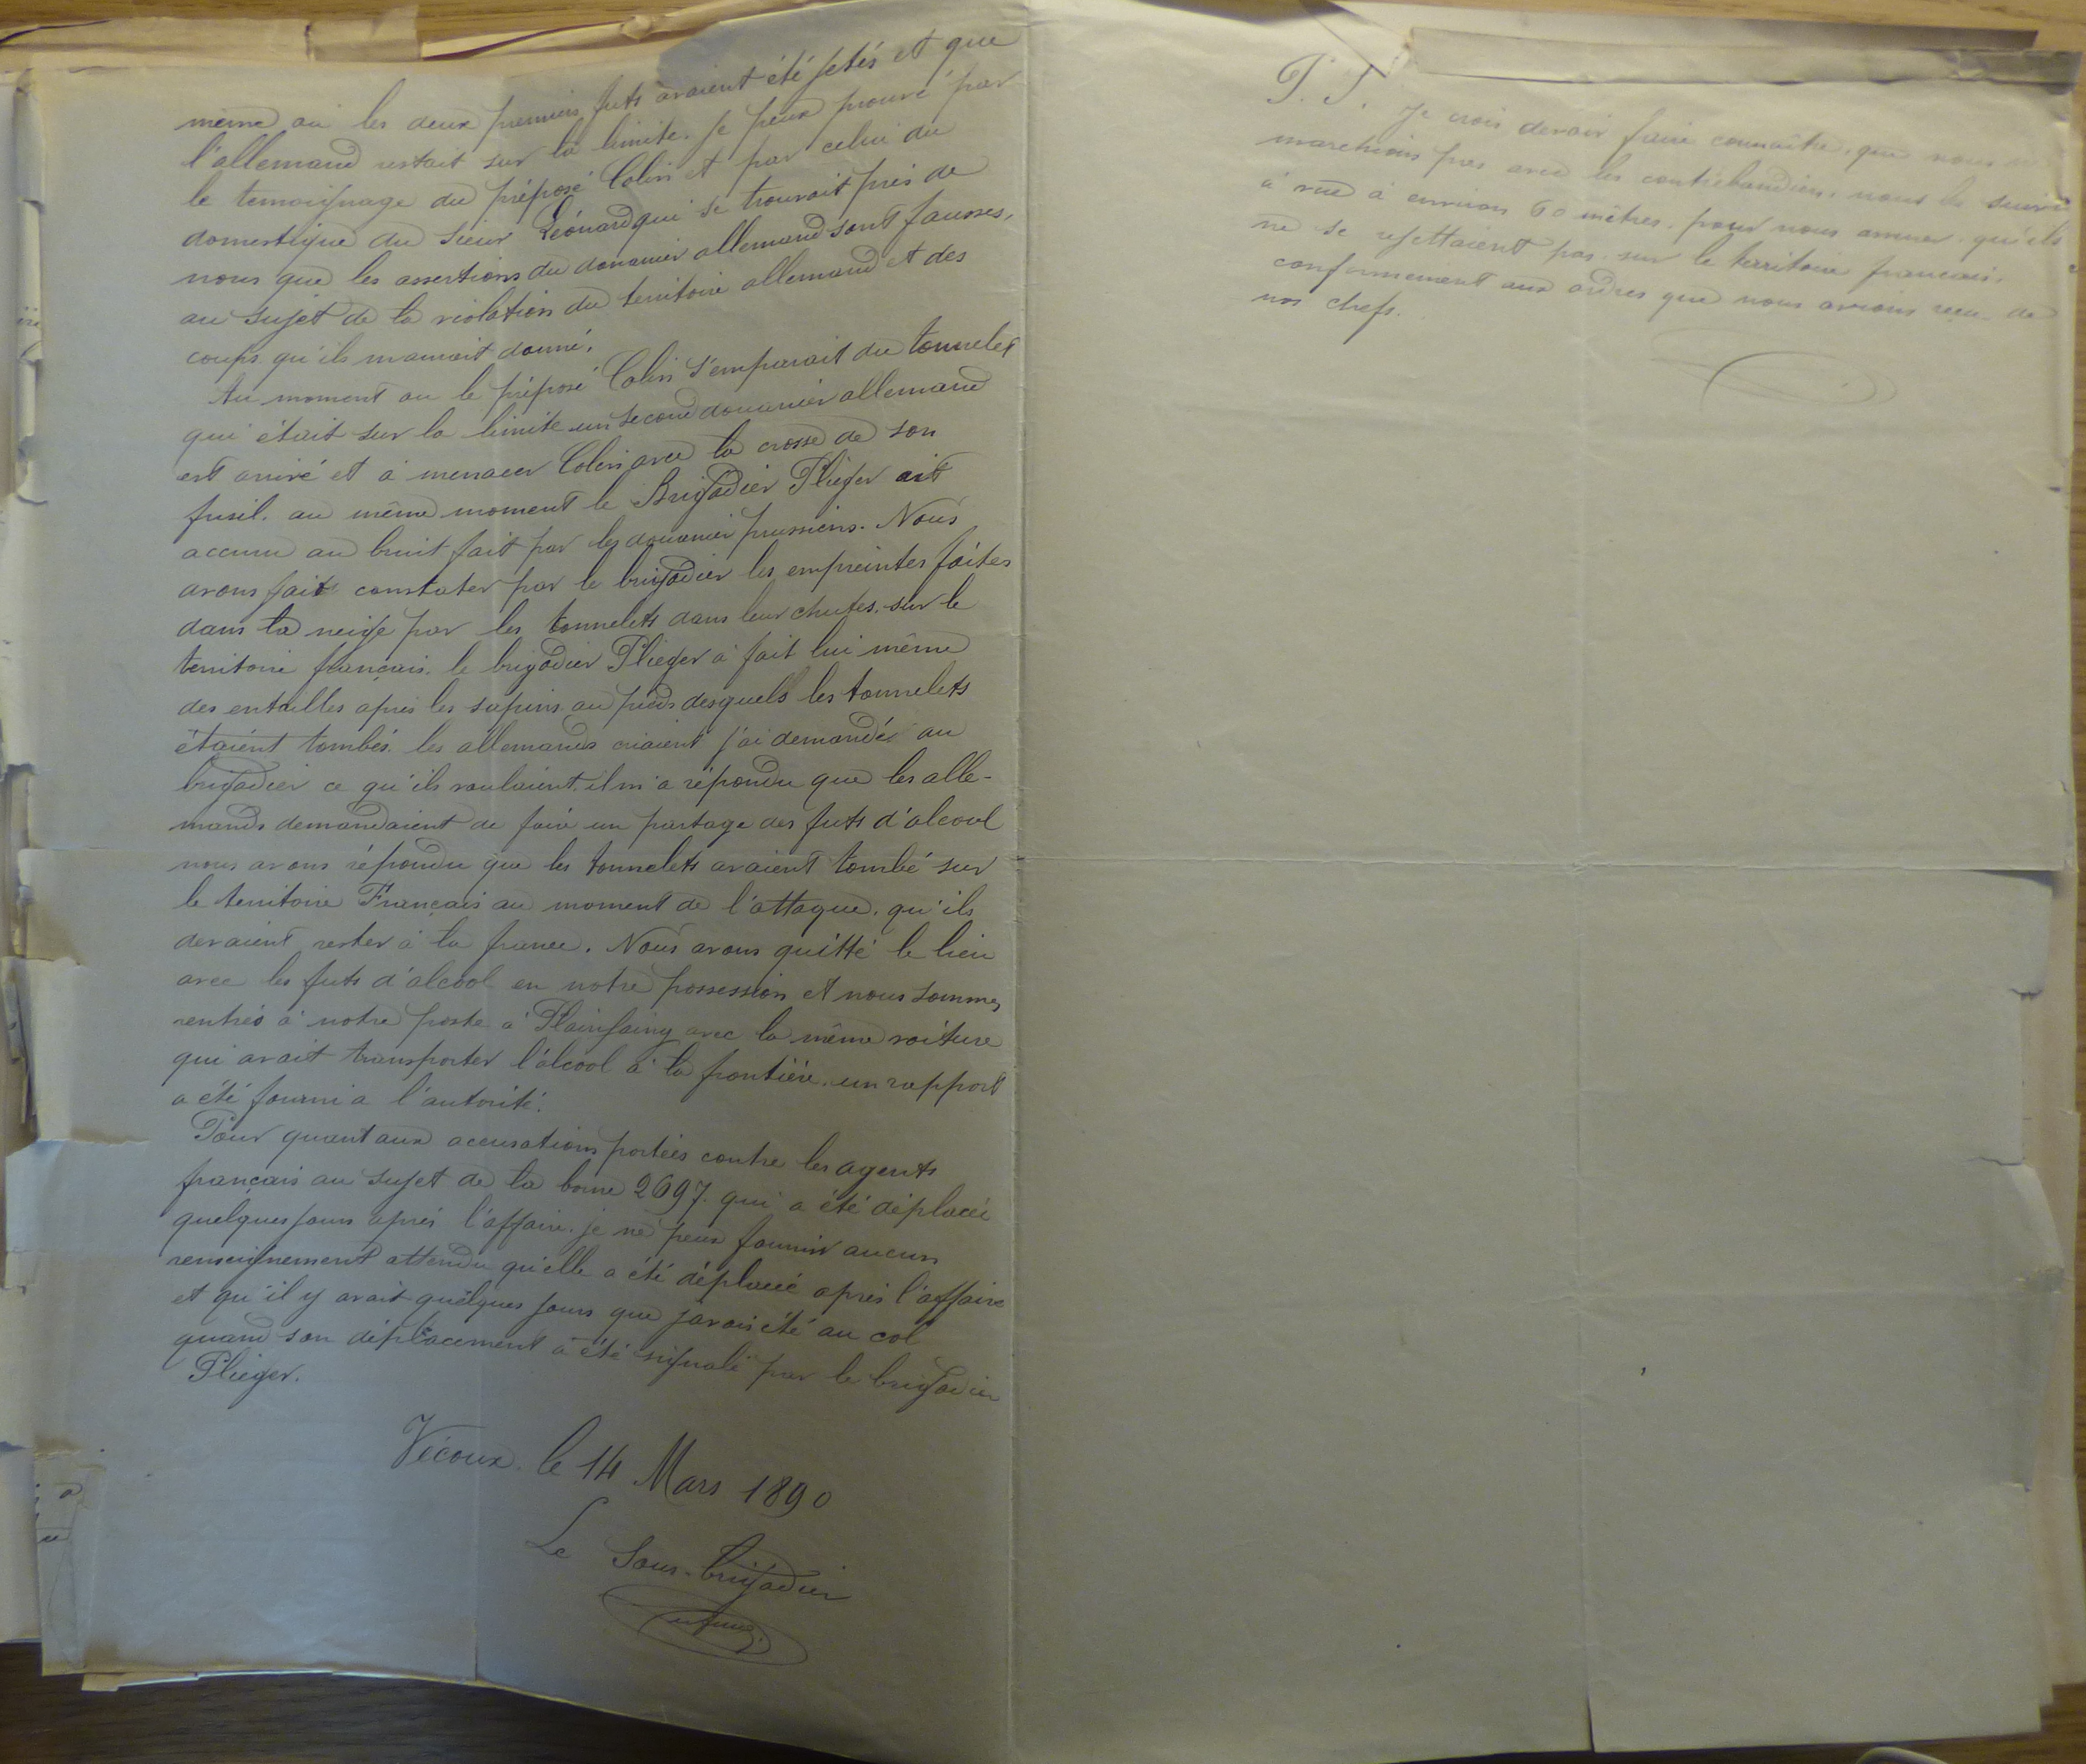 même où les deux premiers futs avaient été jetés et que
l'allemand restait sur la limite. je peux prouvé par
le temoignage du préposé Colin et par celui du
domestique du sieur Léonard qui se trouvait près de
nous que les assertions du douanier allemand sont fausses,
au sujet de la violation du territoire allemand et des
coups qu'ils m'aurait donné.
Au moment ou le préposé Colin s'emparait du tonnelet
qui était sur la limite un second douanier allemand
est arrivé et à menacer Colin avec la crosse de son
fusil. au même moment le Brigadier Flieger ait
accouru au bruit fait par les douanier prussiens. Nous
avons fait constater par le brigadier les empreintes faites
dans la neige par les tonnelets dans leur chutes. sur le
territoire français. le brigadier Flieger à fait lui même
des entailles après les sapins au pieds desquels les tonnelets
étaient tombés. les allemands criaient j'ai demandé au
brigadier ce qu'ils voulaient. il m'a répondu que les alle-
mands demandaient de faire un partage des futs d'alcool
nous avons répondu que les tonnelets avaient tombé sur
le territoire Français au moment de l'attaque. qu'ils
devaient rester à la france. Nous avons quitté le lieu
avec les futs d'alcool en notre possession et nous sommes
rentrés à notre poste à Plainfaing avec la même voiture
qui avait transporter l'alcool à la frontière. un rapport
a été fourni a l'autorité.
Pour quant aux accusations portées contre les agents
français au sujet de la borne 2697. qui a été déplacée
quelques jours après l'affaire. je ne peux fournir aucun
renseignement attendu qu'elle a été déplacée après l'affaire
et qu'il y avait quelques jours que j'avais été au col
quand son déplacement a été signalé par le brigadier
Flieger.
Vécoux. le 14 Mars 1890
Le Sous-brigadier
P. S. Je crois devoir faire connaître, que nous ne
marchions pas avec les contrebandiers. nous les suivi
à vue à environ 60 mètres. pour nous assurer qu'ils
ne se rejettaient pas sur le territoire francais.
conformement aux ordres que nous avions reçu de
nos chefs.